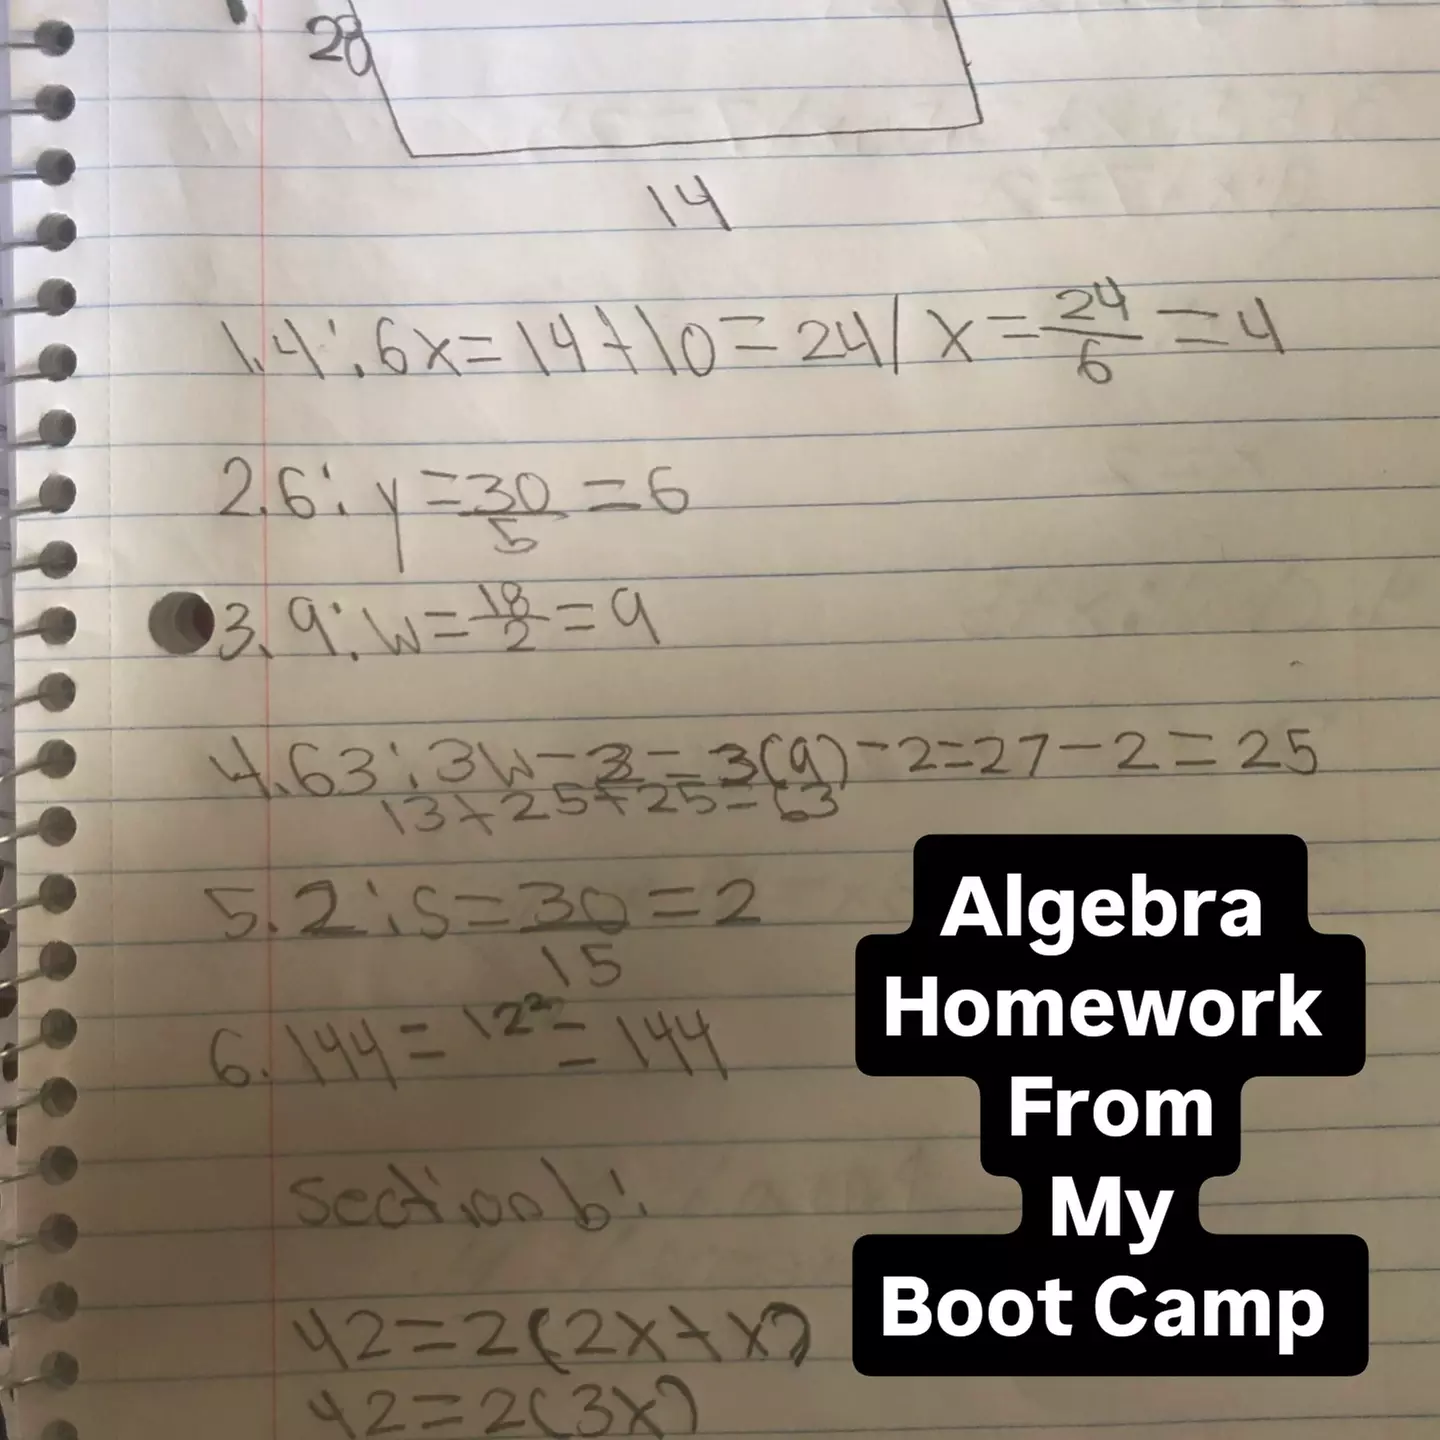 28
14
1.4: 6x=14+10=24/ x=24/6=4
2.6: y=30/5=6
3.9: w=18/2=9
4.63: 3w-3=3(9)-2=27-2=25
13+25+25=63
5.2: s=30/15=2
6.144=12²=144
Section b:
42=2(2x+x)
42=2(3x)
Algebra
Homework
From
My
Boot Camp